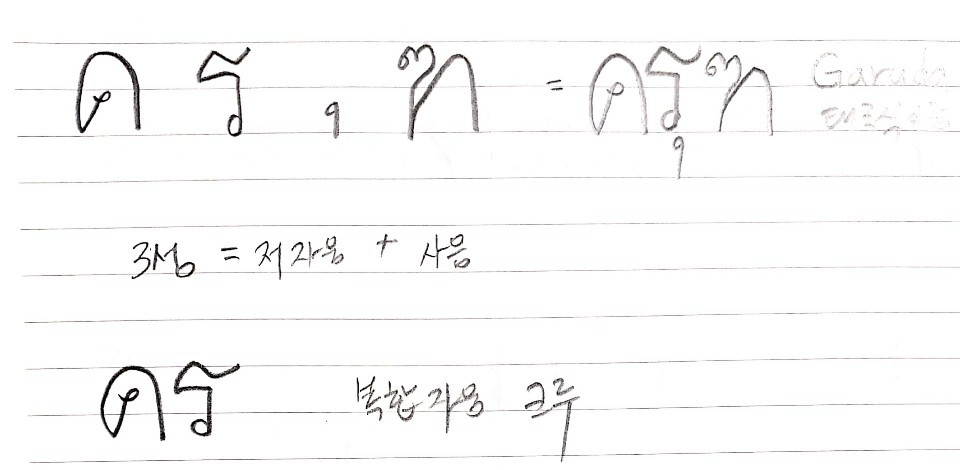 ค ร ุ ฑ = ครุฑ Garuda
3성 = 저자음 + 사음
คร 복합자음 크루